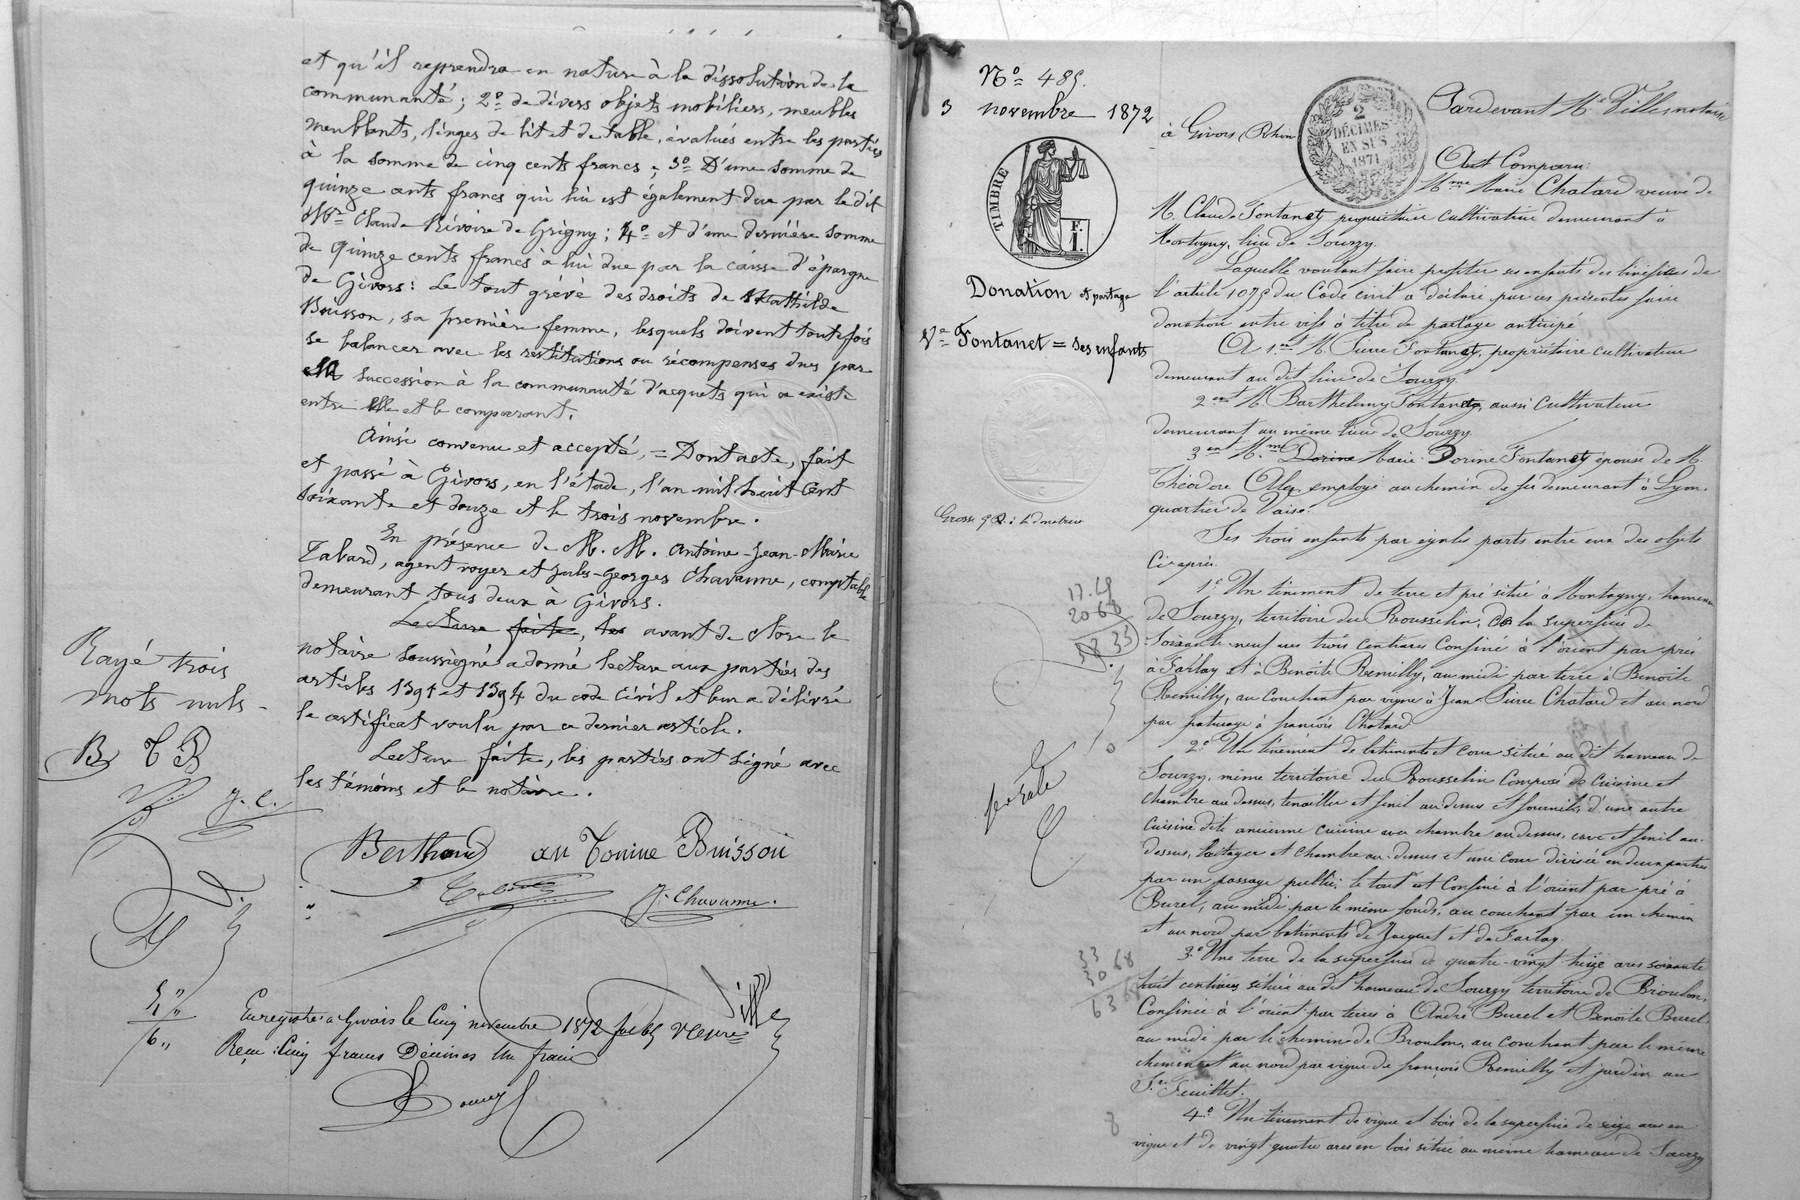 et qu'il reprendra en nature à la dissolution de la
communauté; 2º de divers objets mobiliers, meubles
meublants, linges de lit et de table, évalués entre les parties
à la somme de cinq cents francs; 3º D'une somme de
quinze cents francs qui lui est également due par le dit
Mr Claude Révoire de Grigny; 4º et d'une dernière somme
de quinze cents francs à lui due par la caisse d'épargne
de Givors: Le tout grévé des droits de Mathilde
Buisson, sa première femme, lesquels doivent toutefois
se balancer avec les restitutions ou récompenses dues par
sa succession à la communauté d'acquets qui a existé
entre elle et le comparant.
Ainsi convenu et accepté, = Dont acte, fait
et passé à Givors, en l'étude, l'an mil huit cent
soixante et douze et le trois novembre.
En présence de M. M. Antoine-Jean-Marie
Tabard, agent voyer et Jules-Georges Chavanne, comptable
demeurant tous deux à Givors.
Lecture faite, les avant de clore le
notaire soussigné a donné lecture aux parties des
articles 1391 et 1394 du code civil et leur a délivré
le certificat voulu par ce dernier article.
Lecture faite, les parties ont signé avec
les témoins et le notaire.
Rayé trois
mots nuls -
B T B
J. C.
Berthand an Tonine Buisson
J. Chavanne.
5 "
/6 "
Enregistré à Givors le cinq novembre 1872
Reçu: Cinq francs Décimes Un franc
Nº 485.
3 novembre 1872
TIMBRE
F.
1.
Donation et partage
Ve Fontanet = ses enfants
2
DÉCIMES
EN SUS
1871
Pardevant Me Ville, notaire
à Givors (Rhône
A Comparu:
Mme Marie Chatard veuve de
M. Claude Fontanet, propriétaire cultivateur demeurant à
Montagny, lieu de Sourzy.
Laquelle voulant faire profiter ses enfants des bénéfices de
l'article 1075 du Code civil a déclaré par ces présentes faire
donation entre vifs à titre de partage anticipé
A 1ent M. Pierre Fontanet, propriétaire cultivateur
demeurant au dit lieu de Sourzy
2ent M Barthelemy Fontanet, aussi cultivateur
demeurant au même lieu de Sourzy.
3ent Mme Dorine Marie Dorine Fontanet épouse de M.
Théodore employé au chemin de fer demeurant à Lyon.
quartier de Vaise.
Ses trois enfants par égales parts entre eux des objets
Ci-après.
1º Un tinement de terre et pré situé à Montagny, hameau
de Sourzy, territoire du Rousselin, de la superficie de
Soixante neuf ares trois centiares Confiné à l'orient par pré
à Farlay et à Benoîte Remilly, au midi par terre à Benoîte
Remilly, au couchant par vigne à Jean Pierre Chatard et au nord
par paturage à françois Chatard
2º Un tinement de batiments et cour situé au dit hameau de
Sourzy, même territoire du Rousselin Composé de cuisine et
chambre au dessus, tenailler et fenil au dessus et fournils, d'une autre
cuisine dite ancienne cuisine avec chambre au dessus, cave et fenil au
dessus, et chambre au dessus et une cour divisée en deux parties
par un passage public; le tout est Confiné à l'orient par pré à
Burel, au midi par le même fonds, au couchant par un chemin
et au nord par batiments de Jacquet et de Farlay.
3º Une terre de la superficie de quatre-vingt treize ares soixante
huit centiares située au dit hameau de Sourzy territoire de Broulon,
Confinée à l'orient par terres à André Burel et Benoîte Burel,
au midi par le chemin de Broulon, au couchant par le même
chemin et au nord par vigne de françois Remilly et jardin au
Sr Feuillet.
4º Un tinement de vigne et bois de la superficie de seize ares en
vigne et de vingt-quatre ares en bois situé au même hameau de Sourzy